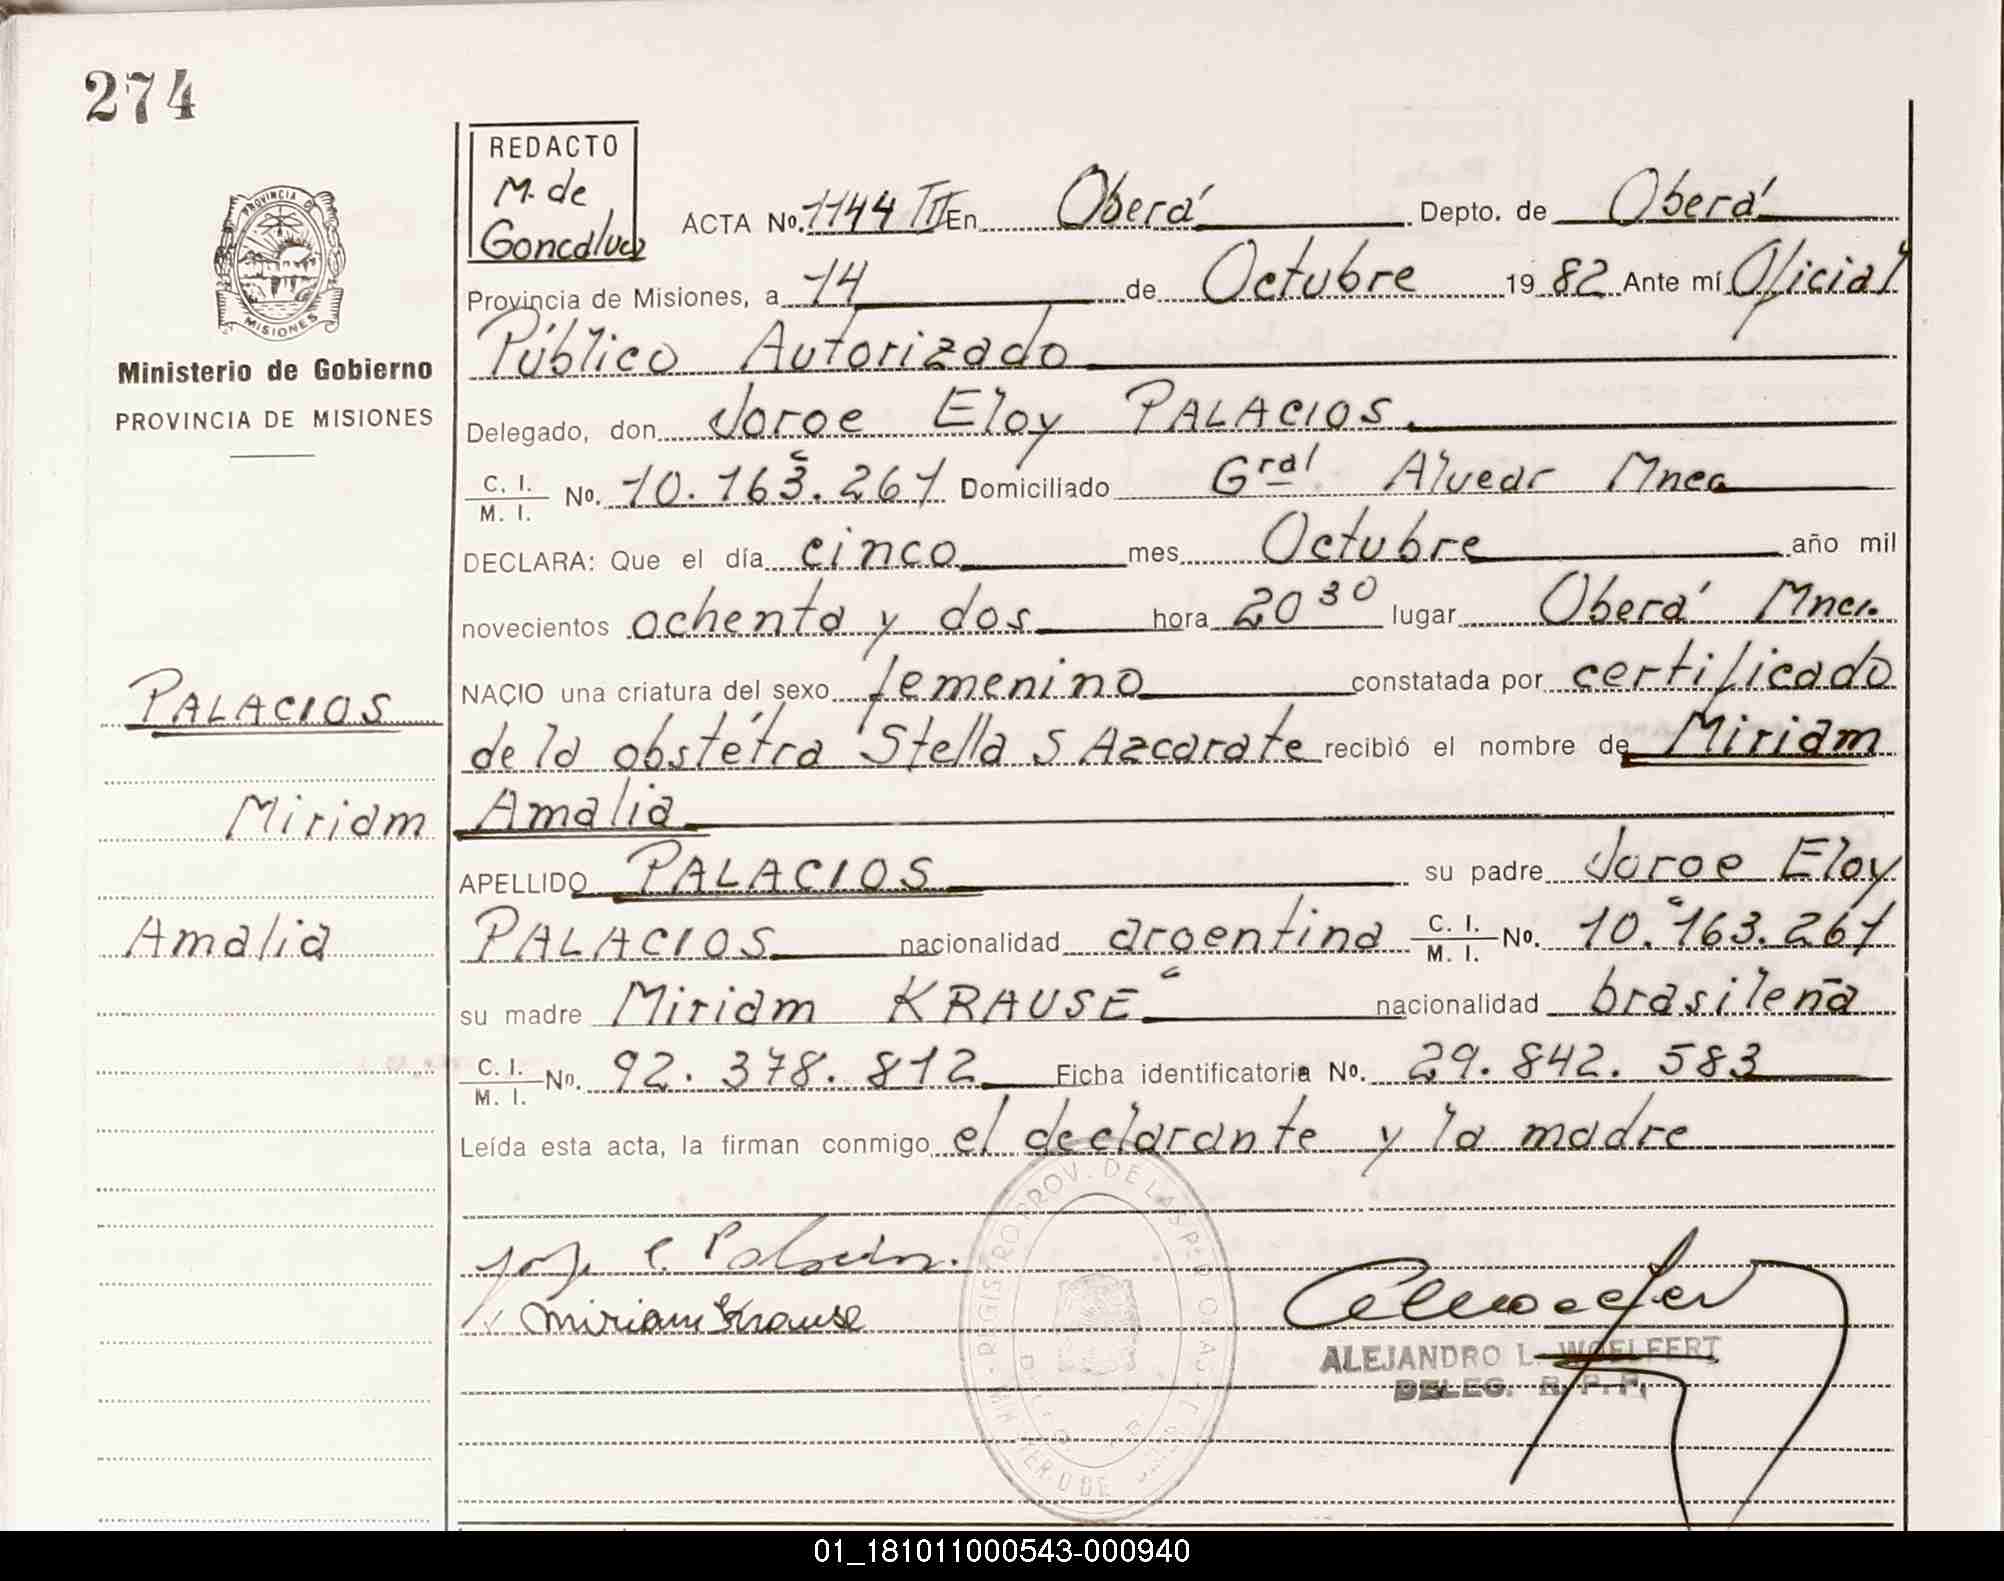 274
REDACTO
M. de
Goncalves
PROVINCIA DE
MISIONES
Ministerio de Gobierno
PROVINCIA DE MISIONES
PALACIOS
Miriam
Amalia
ACTA No. 1144 III En Oberá Depto. de Oberá
Provincia de Misiones, a 14 de Octubre 1982 Ante mí Oficial
Público Autorizado
Delegado, don Jorge Eloy PALACIOS
C. I. / M. I. No. 10.163.261 Domiciliado Gral. Alvear Mnes
DECLARA: Que el día cinco mes Octubre año mil
novecientos ochenta y dos hora 20 30 lugar Oberá Mnes.
NACIO una criatura del sexo femenino constatada por certificado
de la obstétra Stella S Azcarate recibió el nombre de Miriam
Amalia
APELLIDO PALACIOS su padre Jorge Eloy
PALACIOS nacionalidad argentina C. I. / M. I. No. 10.163.261
su madre Miriam KRAUSE nacionalidad brasileña
C. I. / M. I. No. 92.378.812 Ficha identificatoria No. 29.842.583
Leída esta acta, la firman conmigo el declarante y la madre
Jorge E. Palacios.
Miriam Krause
ALEJANDRO L. WOELFERT
DELEG. R. P. P.
REGISTRO PROV. DE LAS P
01_181011000543-000940